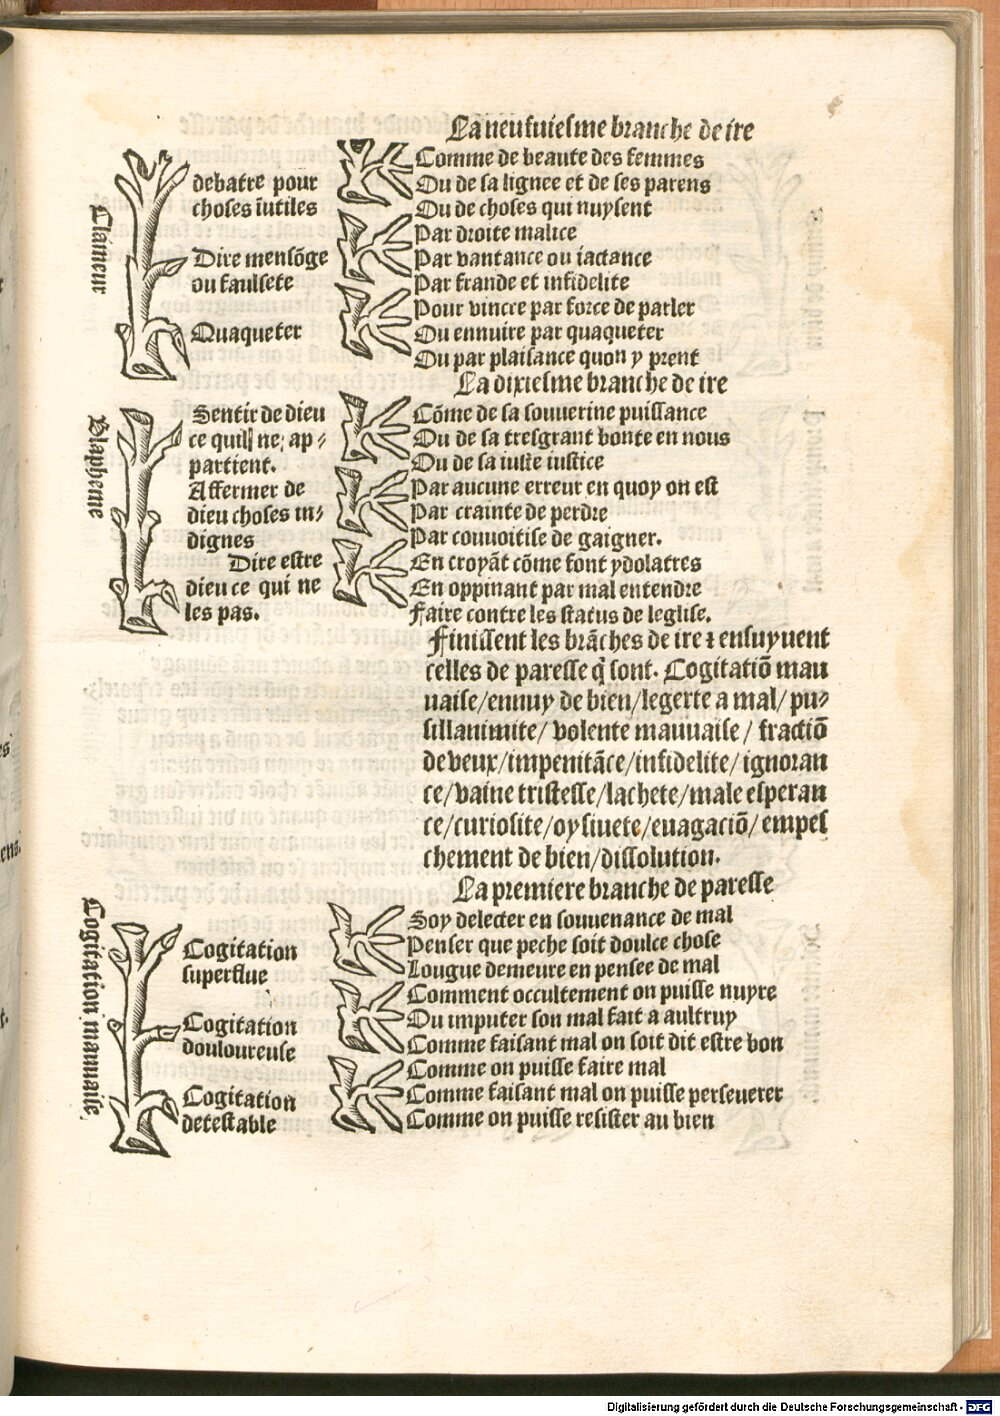 La neufuiesme branche de ire
Clameur
debatre pour
choses iutiles
Dire mensõge
ou faulsete
Quaqueter
Comme de beaute des femmes
Ou de sa lignee et de ses parens
Ou de choses qui nuysent
Par droite malice
Par vantance ou iactance
Par frande et infidelite
Pour vincre par force de parler
Ou ennuire par quaqueter
Ou par plaisance quon y prent
La dixiesme branche de ire
Blapheme
Sentir de dieu
ce quil ne ap-
partient.
Affermer de
dieu choses in-
dignes
Dire estre
dieu ce qui ne
les pas.
Cõme de sa souuerine puissance
Ou de sa tresgrant bonte en nous
Ou de sa iuste iustice
Par aucune erreur en quoy on est
Par crainte de perdre
Par couuoitise de gaigner.
En croyãt cõme font ydolatres
En oppinant par mal entendre
Faire contre les status de leglise.
Finissent les brãches de ire ⁊ ensuyuent
celles de paresse q̃ sont. Cogitatiõ mau
uaise/ennuy de bien/legerte a mal/pu-
sillanimite/ volente mauuaise/ fractiõ
de veux/impenitãce/infidelite/ignoran
ce/vaine tristesse/lachete/male esperan
ce/curiosite/oysiuete/euagaciõ/empes
chement de bien/dissolution.
La premiere branche de paresse
Cogitation mauuaise.
Cogitation
superflue
Cogitation
douloureuse
Cogitation
detestable
Soy delecter en souuenance de mal
Penser que peche soit doulce chose
Lougue demeure en pensee de mal
Comment occultement on puisse nuyre
Ou imputer son mal fait a aultruy
Comme faisant mal on soit dit estre bon
Comme on puisse faire mal
Comme faisant mal on puisse perseuerer
Comme on puisse resister au bien
Digitalisierung gefördert durch die Deutsche Forschungsgemeinschaft - DFG